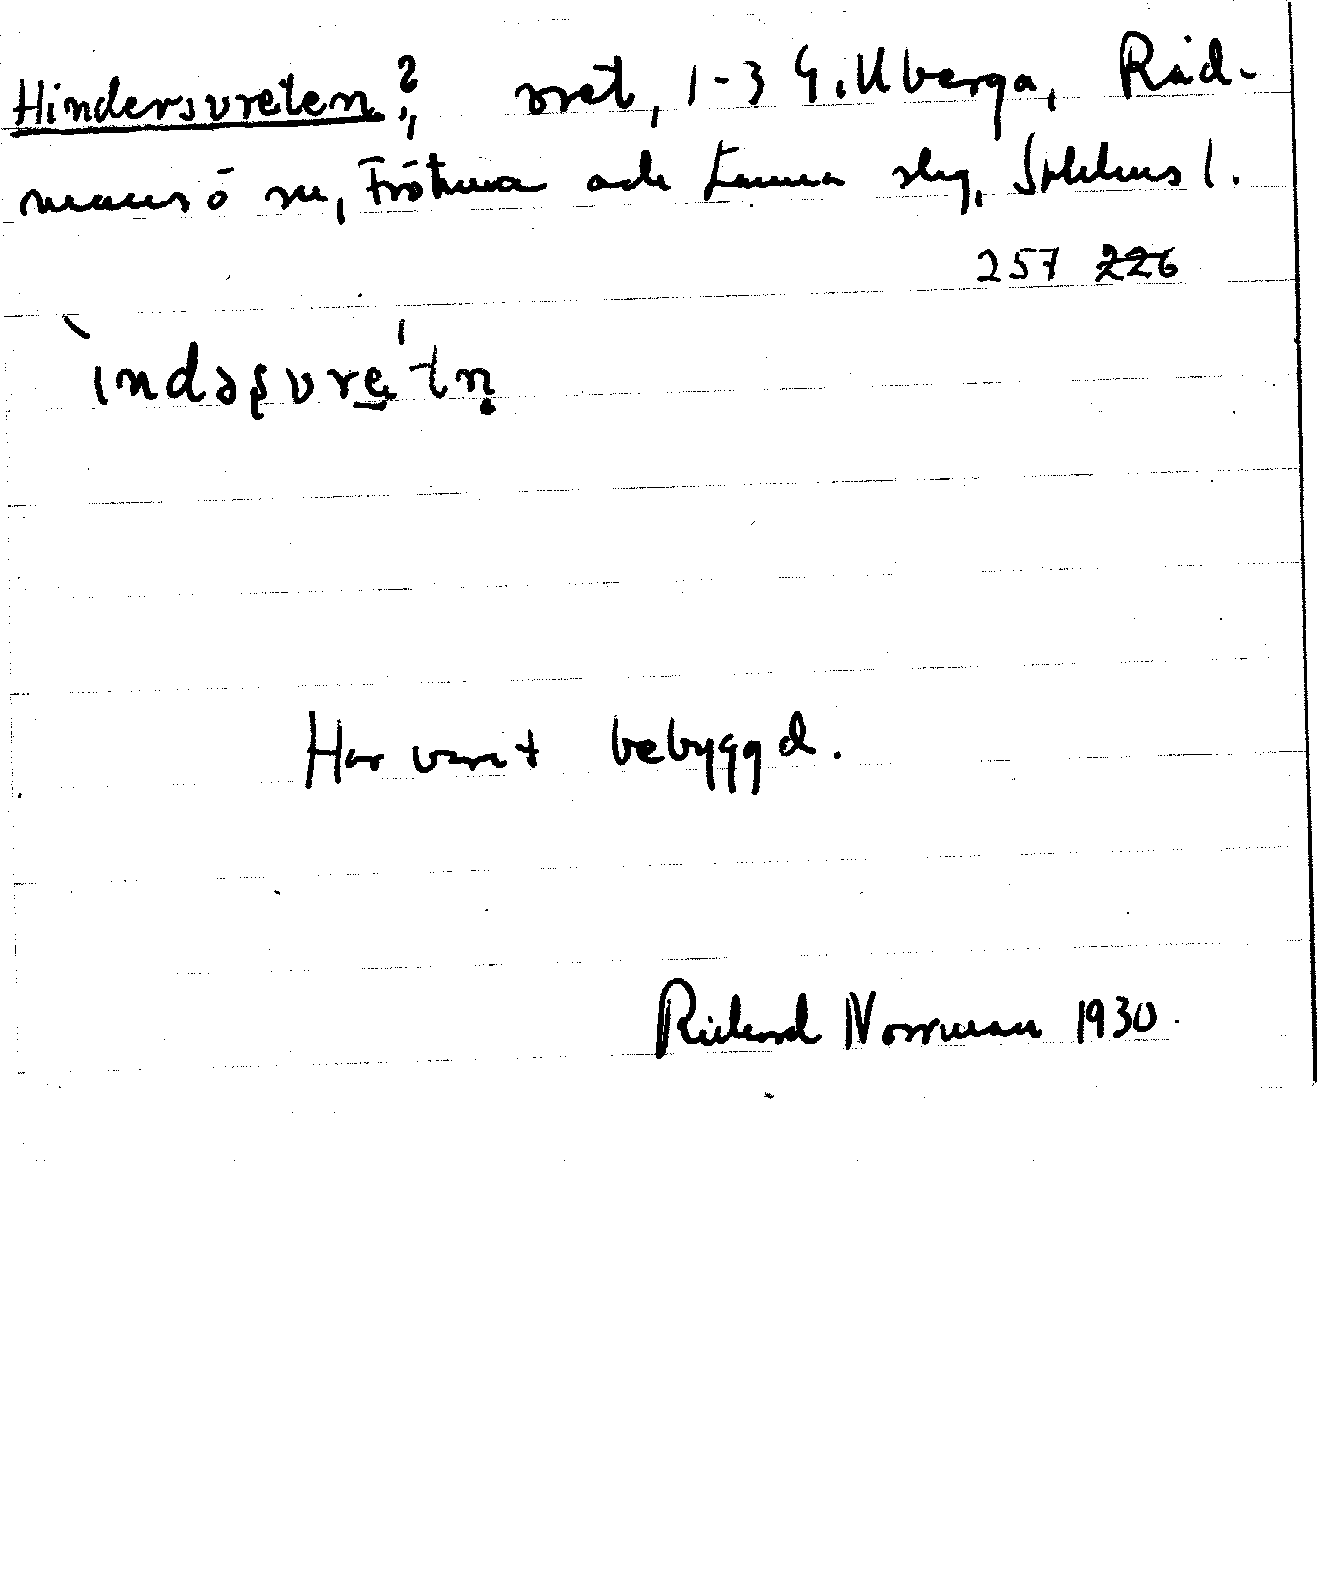 Hindersvreten?, vret, 1-3 Gillberga, Råd-
mansö sn, Frötuna och Länna slg, Sthlms l.
257 226
`indəʂvre̠'tṇ
Har varit bebyggd.
Richard Norrman 1930.